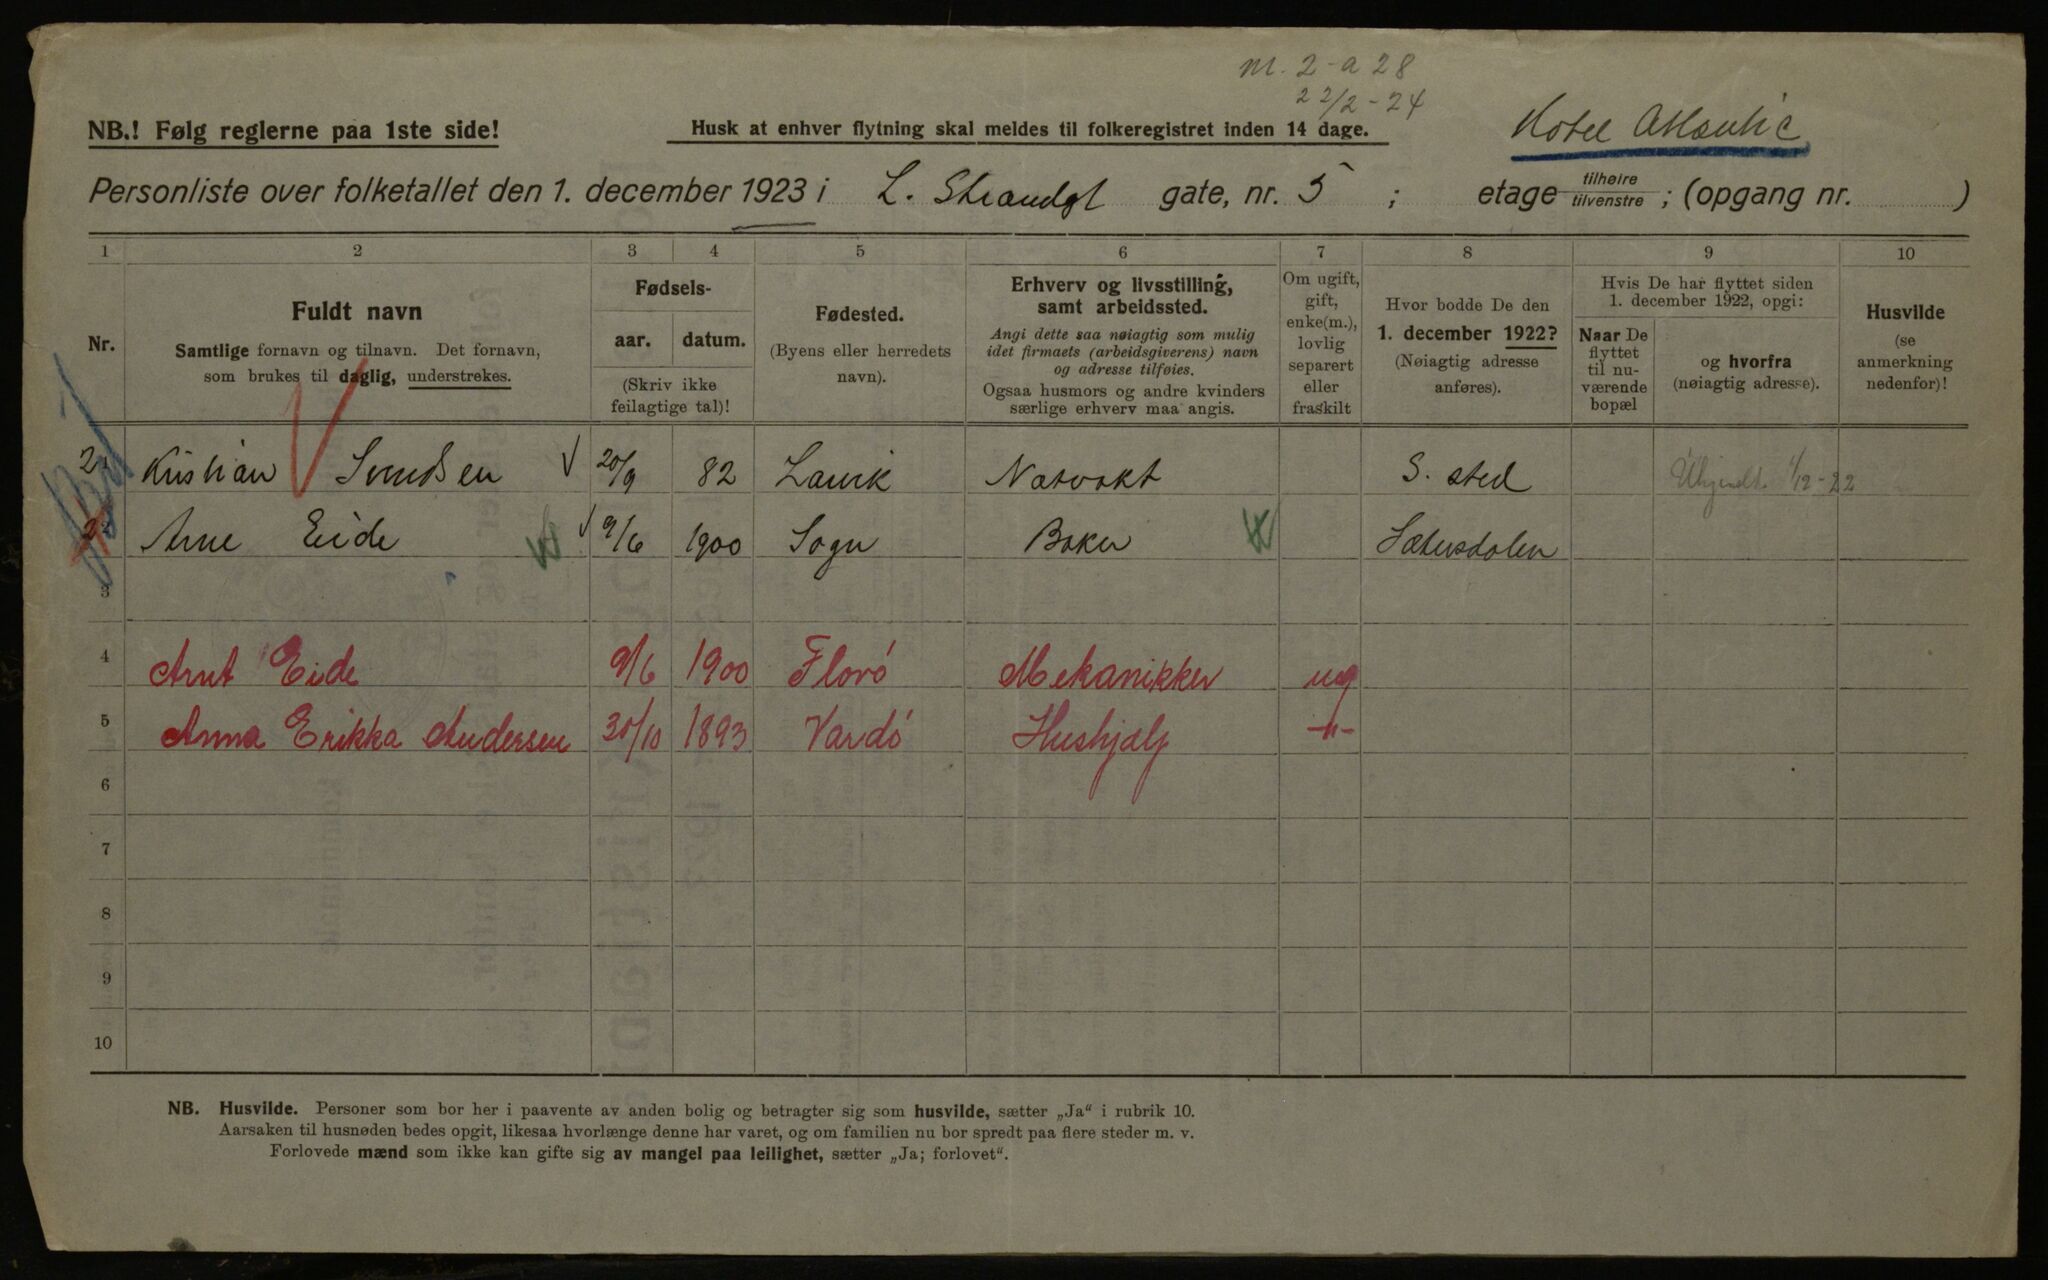 m. 2-a 28
22/2-24
NB.! Følg reglerne paa 1ste side!
Husk at enhver flytning skal meldes til folkeregistret inden 14 dage.
Hotel Atlantic
Personliste over folketallet den 1. december 1923 i L. Strandgt gate, nr. 5 ; etage tilhøire tilvenstre ; (opgang nr. )
1 2 3 4 5 6 7 8 9 10
Nr.
Fuldt navn
Samtlige fornavn og tilnavn. Det fornavn,
som brukes til daglig, understrekes.
Fødsels-
aar. datum.
(Skriv ikke
feilagtige tal)!
Fødested.
(Byens eller herredets
navn).
Erhverv og livsstilling,
samt arbeidssted.
Angi dette saa nøiagtig som mulig
idet firmaets (arbeidsgiverens) navn
og adresse tilføies.
Ogsaa husmors og andre kvinders
særlige erhverv maa angis.
Om ugift,
gift,
enke(m.),
lovlig
separert
eller
fraskilt
Hvor bodde De den
1. december 1922?
(Nøiagtig adresse
anføres).
Hvis De har flyttet siden
1. december 1922, opgi:
Naar De
flyttet
til nu-
værende
bopæl
og hvorfra
(nøiagtig adresse).
Husvilde
(se
anmerkning
nedenfor)!
21 Kristian Svendsen 20/9 82 Larvik Natvakt S. sted 1/12-22
22 Arne Eide 9/6 1900 Sogn Baker Sætersdalen
3
4 Arnt Eide 9/6 1900 Florö Mekanikker ug
5 Anna Erikka Andersen 30/10 1893 Vardö Hushjælp -"-
6
7
8
9
10
NB. Husvilde. Personer som bor her i paavente av anden bolig og betragter sig som husvilde, sætter „Ja" i rubrik 10.
Aarsaken til husnøden bedes opgit, likesaa hvorlænge denne har varet, og om familien nu bor spredt paa flere steder m. v.
Forlovede mænd som ikke kan gifte sig av mangel paa leilighet, sætter „Ja; forlovet".